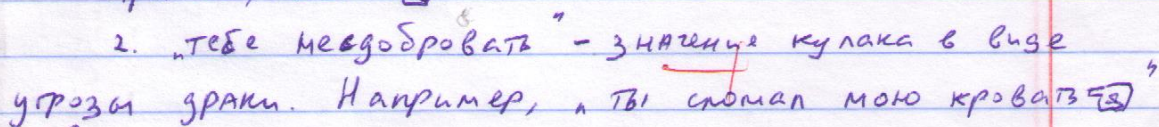 2. „тебе несдобровать" – значение кулака в виде
угрозы драки. Например, „ты сломал мою кровать"